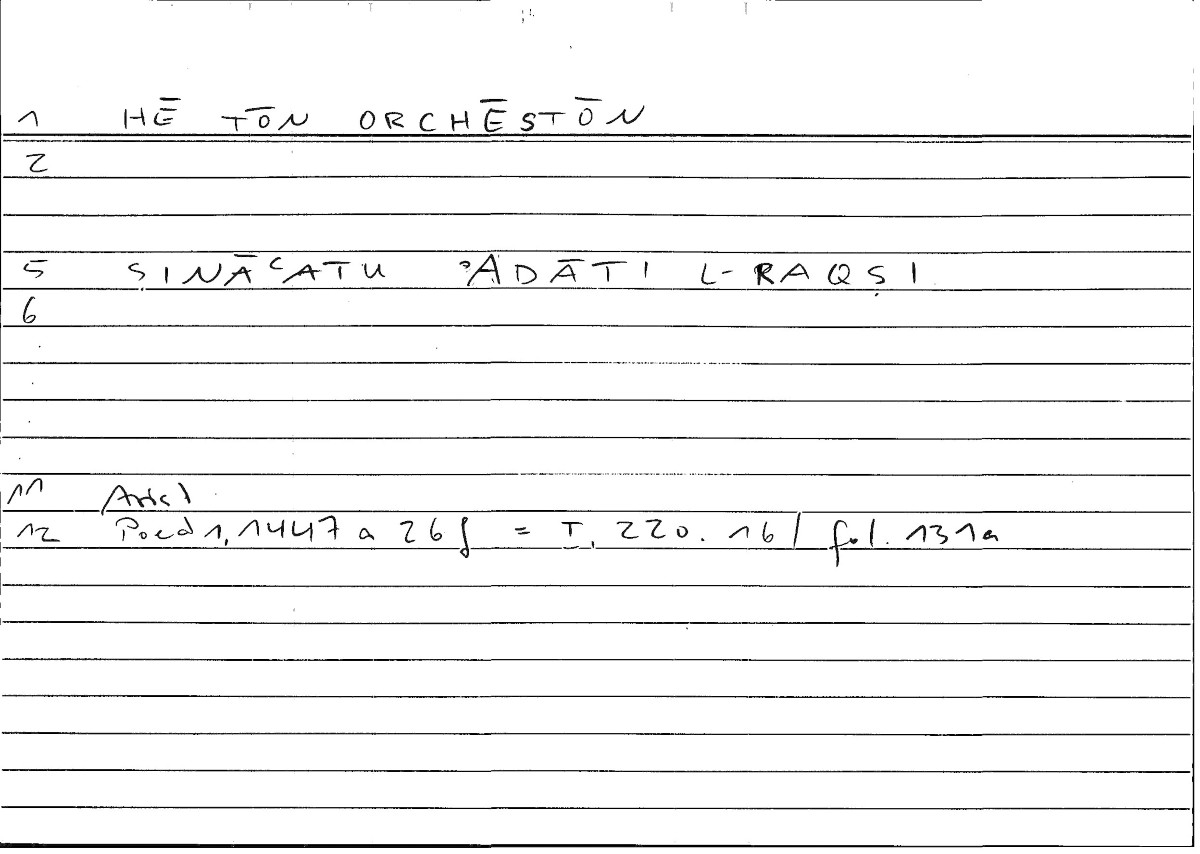 1 HĒ TŌN ORCHĒSTŌN
2
5 ṢINĀʿATU ʾADĀTI L-RAQṢI
6
11 Arist
12 Poed 1, 1447 a 26f = T, 220.16 / fol. 131a